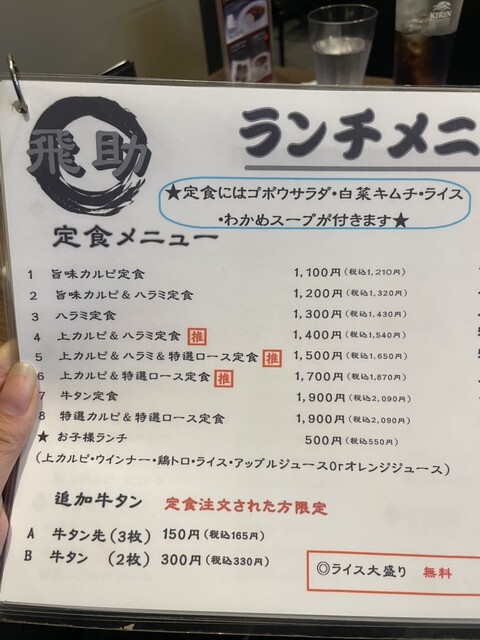 KIRIN
飛助
ランチメニ
★定食にはゴボウサラダ・白菜キムチ・ライス
・わかめスープが付きます★
定食メニュー
1 旨味カルビ定食 1,100円(税込1,210円)
2 旨味カルビ&ハラミ定食 1,200円(税込1,320円)
3 ハラミ定食 1,300円(税込1,430円)
4 上カルビ&ハラミ定食 推 1,400円(税込1,540円)
5 上カルビ&ハラミ&特選ロース定食 推 1,500円(税込1,650円)
6 上カルビ&特選ロース定食 推 1,700円(税込1,870円)
7 牛タン定食 1,900円(税込2,090円)
8 特選カルビ&特選ロース定食 1,900円(税込2,090円)
★ お子様ランチ 500円(税込550円)
(上カルビ・ウインナー・鶏トロ・ライス・アップルジュースOrオレンジジュース)
追加牛タン 定食注文された方限定
A 牛タン先(3枚) 150円(税込165円)
B 牛タン (2枚) 300円(税込330円)
◎ライス大盛り 無料